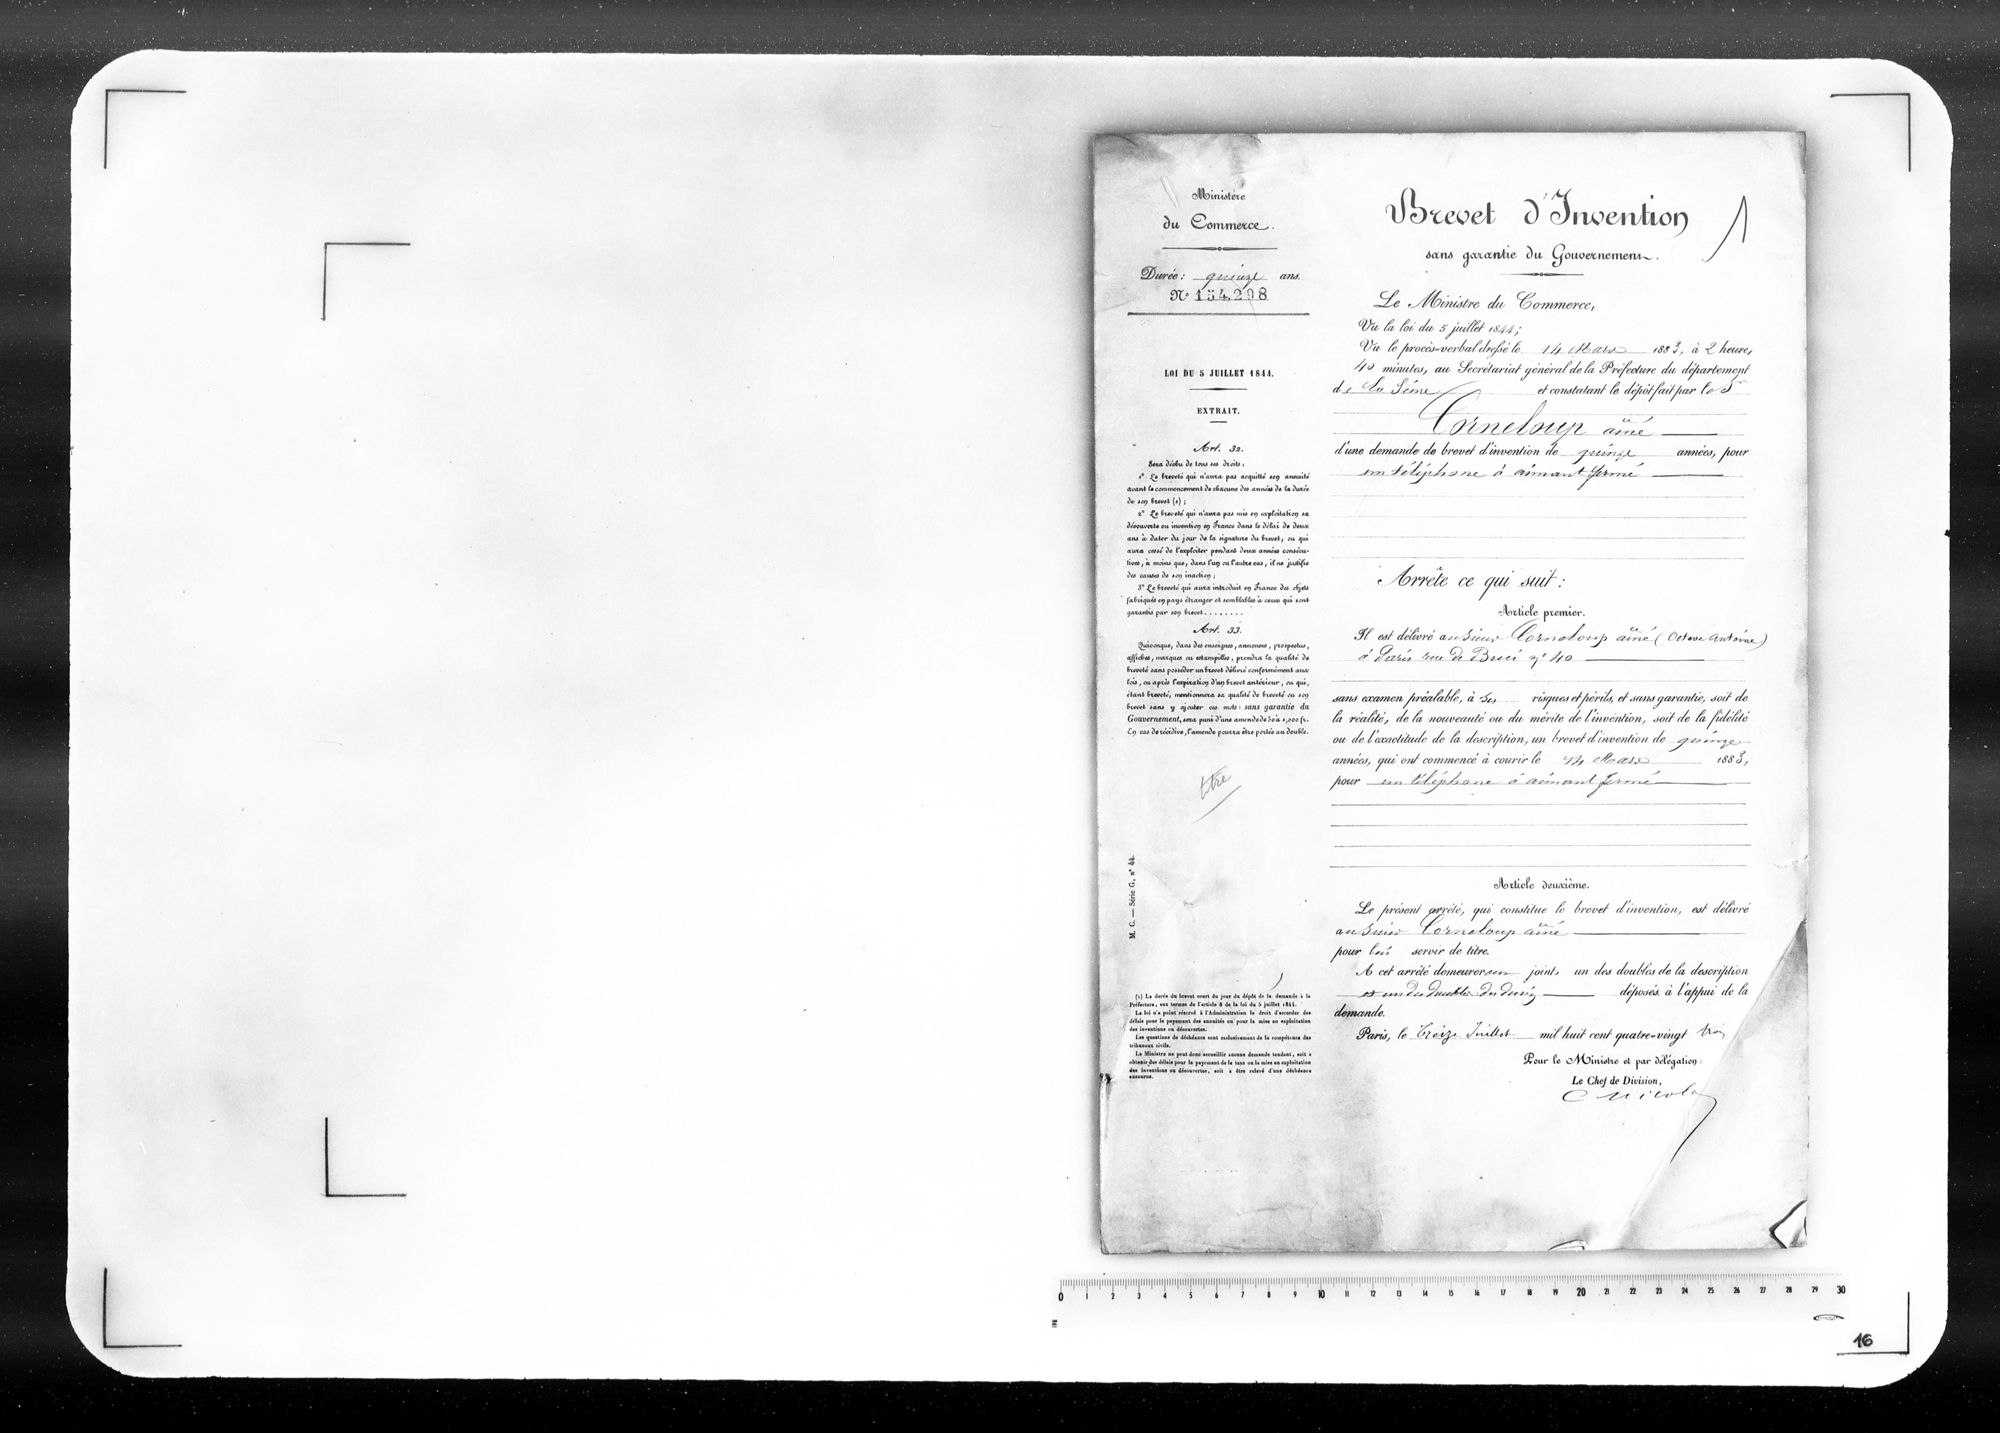 Ministère
du Commerce.
Durée : quinze ans.
N° 154.298
LOI DU 5 JUILLET 1844.
EXTRAIT.
Art. 32.
Sera déchu de tous ses droits :
1° Le breveté qui n'aura pas acquitté son annuité
avant le commencement de chacune des années de la durée
de son brevet (1) ;
2° Le breveté qui n'aura pas mis en exploitation sa
découverte ou invention en France dans le délai de deux
ans à dater du jour de la signature du brevet, ou qui
aura cessé de l'exploiter pendant deux années consécu-
tives, à moins que, dans l'un ou l'autre cas, il ne justifie
des causes de son inaction ;
3° Le breveté qui aura introduit en France des objets
fabriqués en pays étranger et semblables à ceux qui sont
garantis par son brevet . . . . . . . .
Art. 33.
Quiconque, dans des enseignes, annonces, prospectus,
affiches, marques ou estampilles, prendra la qualité de
breveté sans posséder un brevet délivré conformément aux
lois, ou après l'expiration d'un brevet antérieur, ou qui,
étant breveté, mentionnera sa qualité de breveté ou son
brevet sans y ajouter ces mots : sans garantie du
Gouvernement, sera puni d'une amende de 50 à 1,000 fr.
En cas de récidive, l'amende pourra être portée au double.
titre
M. C. — Série G, n° 44.
(1) La durée du brevet court du jour du dépôt de la demande à la
Préfecture, aux termes de l'article 8 de la loi du 5 juillet 1844.
La loi n'a point réservé à l'Administration le droit d'accorder des
délais pour le payement des annuités ou pour la mise en exploitation
des inventions ou découvertes.
Les questions de déchéance sont exclusivement de la compétence des
tribunaux civils.
Le Ministre ne peut donc accueillir aucune demande tendant, soit à
obtenir des délais pour le payement de la taxe ou la mise en exploitation
des inventions ou découvertes, soit à être relevé d'une déchéance
encourue.
Brevet d'Invention
sans garantie du Gouvernement.
1
Le Ministre du Commerce,
Vu la loi du 5 juillet 1844 ;
Vu le procès-verbal dressé le 14 Mars 1883, à 2 heures
40 minutes, au Secrétariat général de la Préfecture du département
de la Seine et constatant le dépôt fait par le S
Corneloup aîné
d'une demande de brevet d'invention de quinze années, pour
un téléphone à aimant fermé
Arrête ce qui suit :
Article premier.
Il est délivré au sieur Corneloup aîné (Octave Antoine)
à Paris rue de Buci n° 40
sans examen préalable, à ses risques et périls, et sans garantie, soit de
la réalité, de la nouveauté ou du mérite de l'invention, soit de la fidélité
ou de l'exactitude de la description, un brevet d'invention de quinze
années, qui ont commencé à courir le 14 Mars 1883,
pour un téléphone à aimant fermé
Article deuxième.
Le présent arrêté, qui constitue le brevet d'invention, est délivré
au sieur Corneloup aîné
pour lui servir de titre.
A cet arrêté demeureront joints un des doubles de la description
et un des doubles du dessin déposés à l'appui de la
demande.
Paris, le treize Juillet mil huit cent quatre-vingt trois
Pour le Ministre et par délégation :
Le Chef de Division,
C Nicolas
0 1 2 3 4 5 6 7 8 9 10 11 12 13 14 15 16 17 18 19 20 21 22 23 24 25 26 27 28 29 30
16